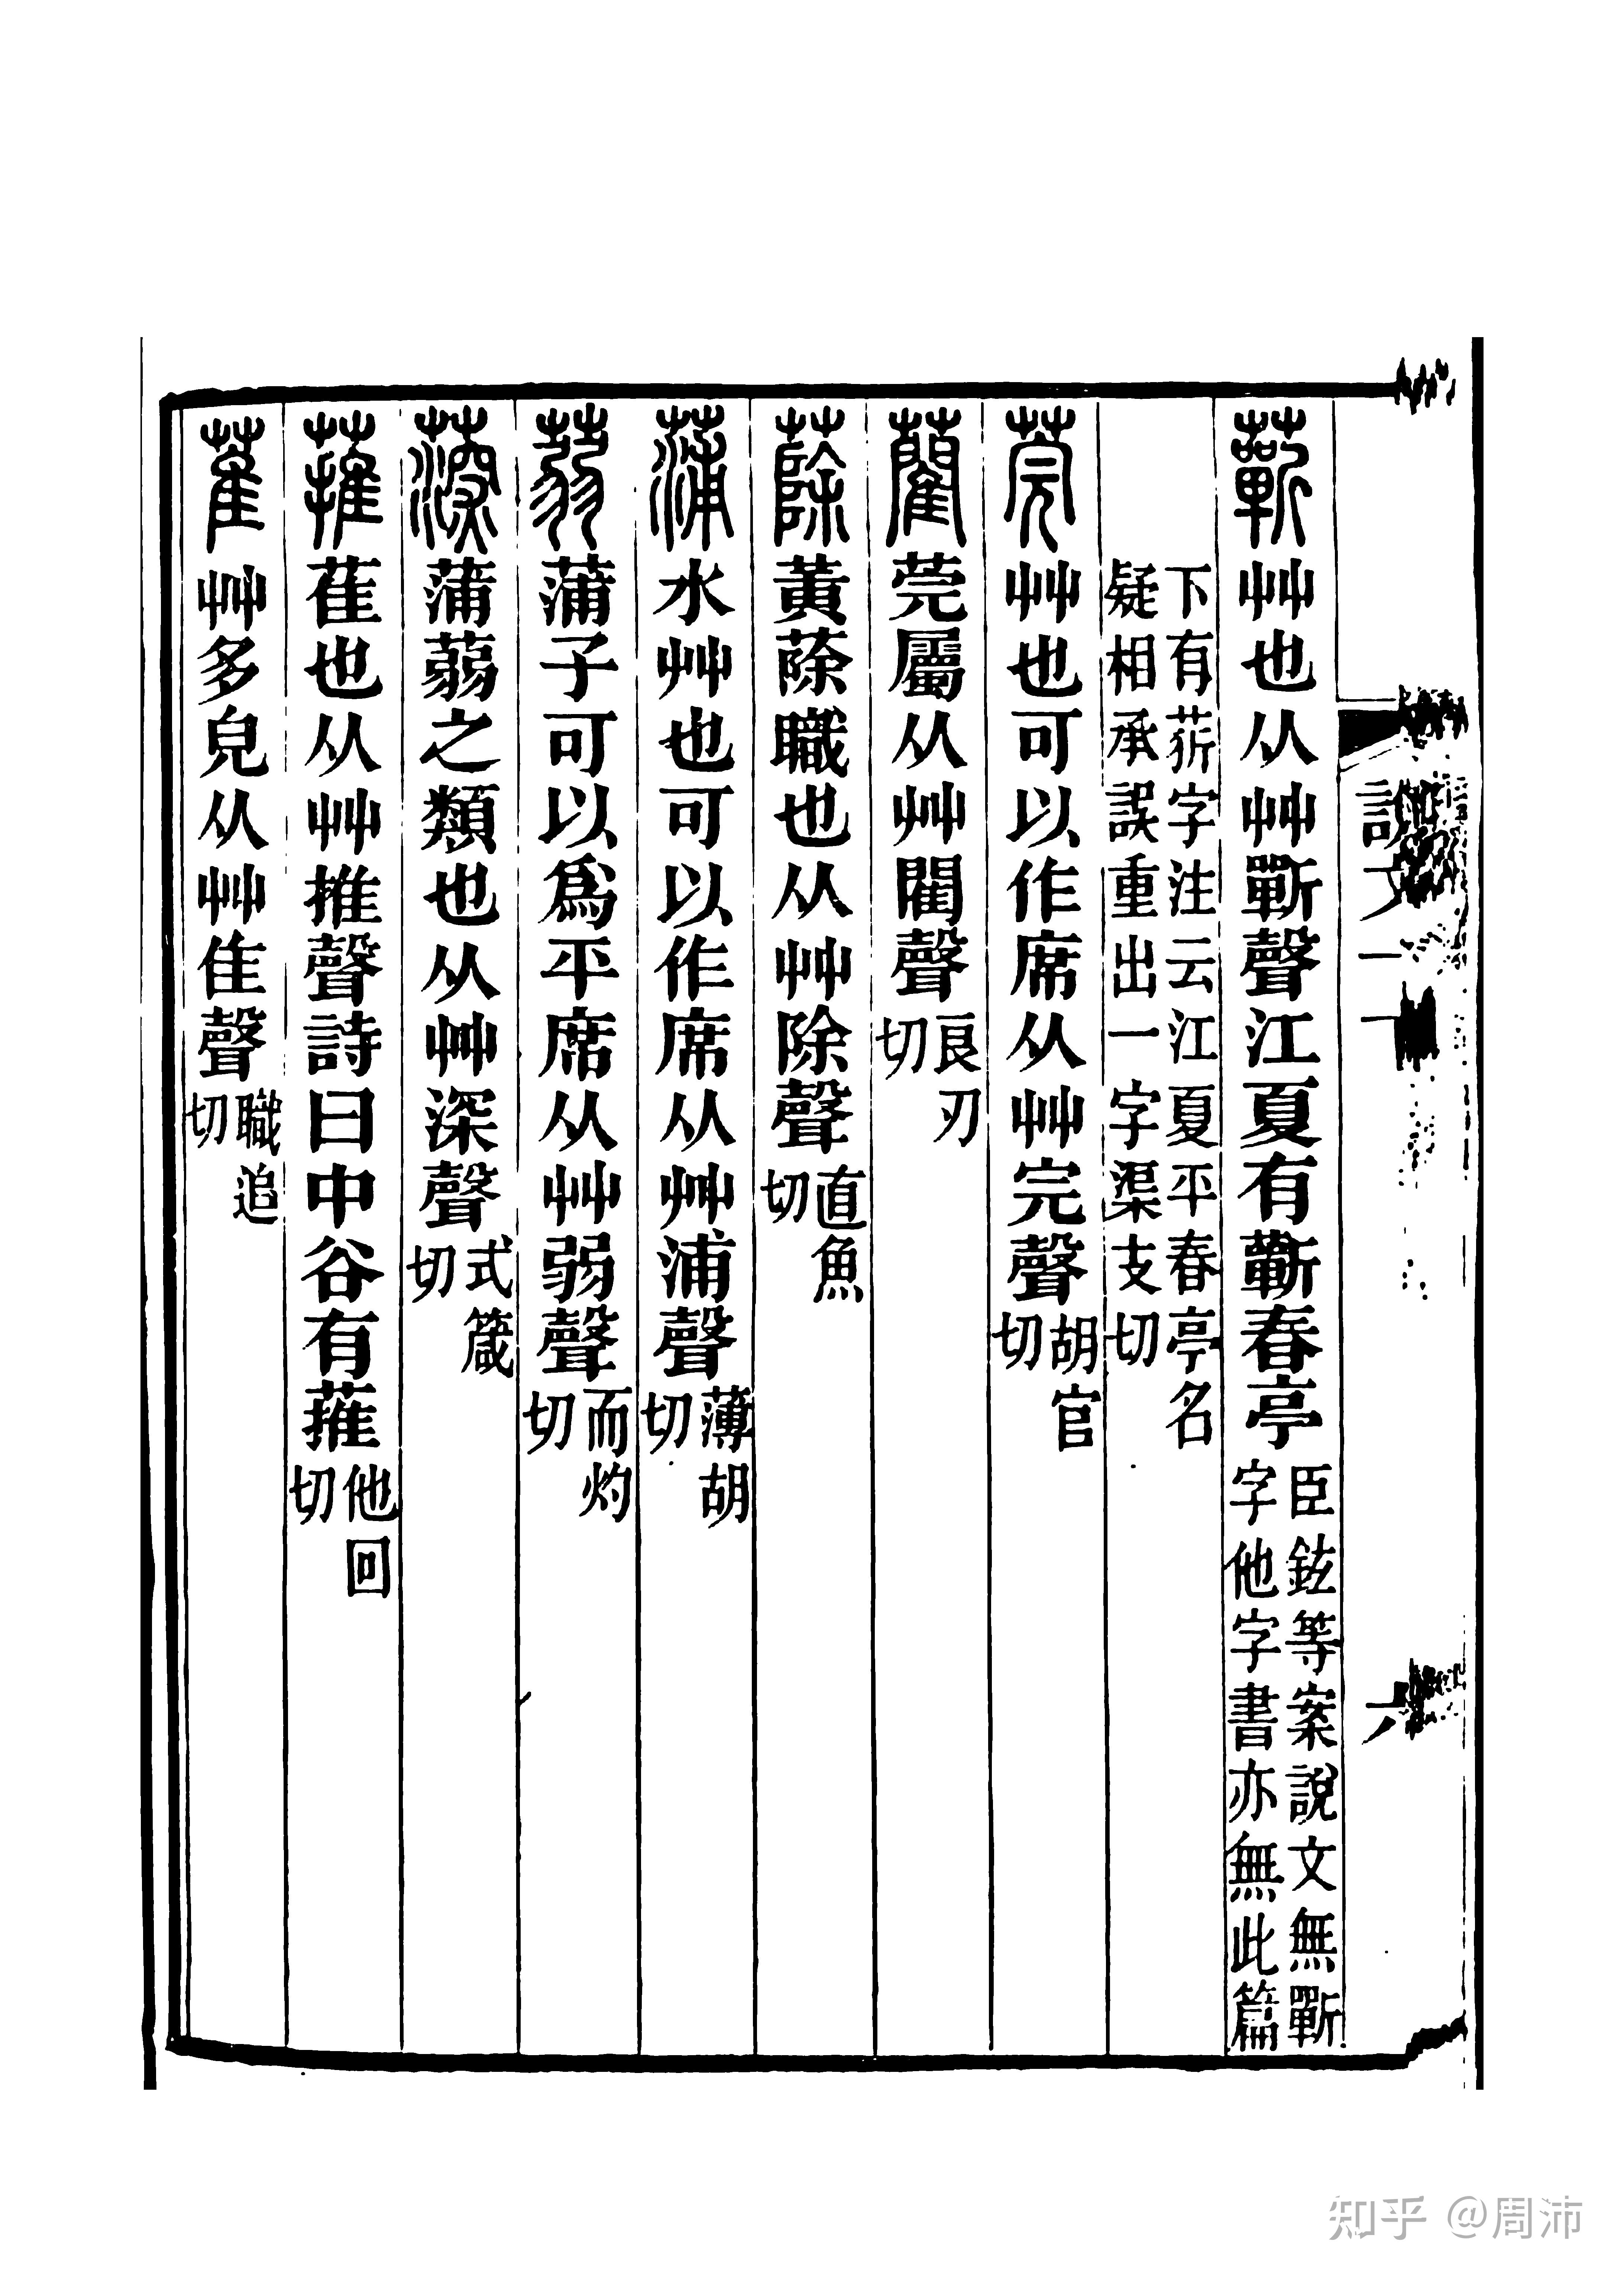 説文一下
六
蘄艸也从艸𣂷聲江夏有蘄春亭臣鉉等案說文無𣂷字他字書亦無此篇
下有菥字注云江夏平春亭名疑相承誤重出一字渠支切
莞艸也可以作席从艸完聲胡官切
藺莞屬从艸閵聲良刃切
蒢黃蒢職也从艸除聲直魚切
蒲水艸也可以作席从艸浦聲薄胡切
蒻蒲子可以爲平席从艸弱聲而灼切
蒤蒲蒻之類也从艸深聲式箴切
蓷萑也从艸推聲詩曰中谷有蓷他回切
萑艸多皃从艸隹聲職追切
知乎 @周沛